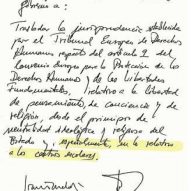 Gobierno a:
Trasladar la jurisprudencia establecida
por el Tribunal Europeo de Derechos
Humanos respecto del artículo 9 del
Convenio Europeo para la Protección de los
Derechos Humanos y de las Libertades
Fundamentales, relativo a la libertad
de pensamiento, de conciencia y de
religión, desde el principio de
neutralidad ideológica y religiosa del
Estado y, especialmente, en lo relativo
a los centros escolares.